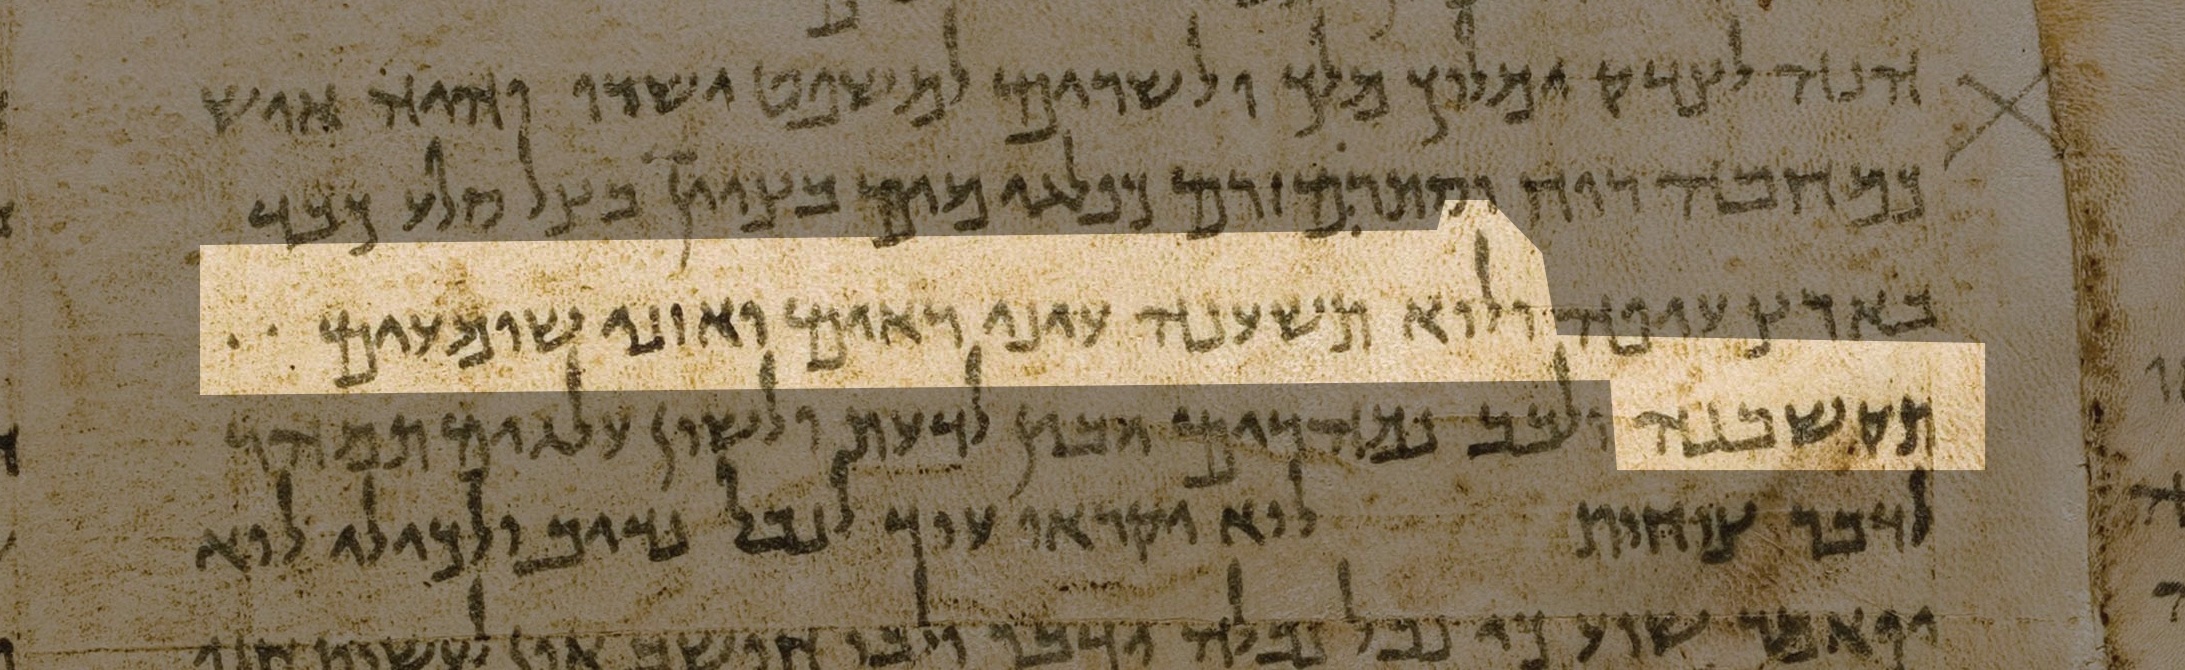 הנה לצדק ימלוך מלך ולשרים למשפט ישרו והיה איש
כמחבה רוח וסתרם זרם כפלגי מים בציון בצל סלע כבד
בארץ עיפה ולוא תשענה עיני ראים ואזני שומעים
תקשבנה ולבב נמהרים יבין לדעת ולשון עלגים תמהר
לדבר צוחות לוא יקראו עוד לנבל נדיב ולכילי לוא
יואמר שוע כי נבל נבלה ידבר ולבו חושב און לעשות